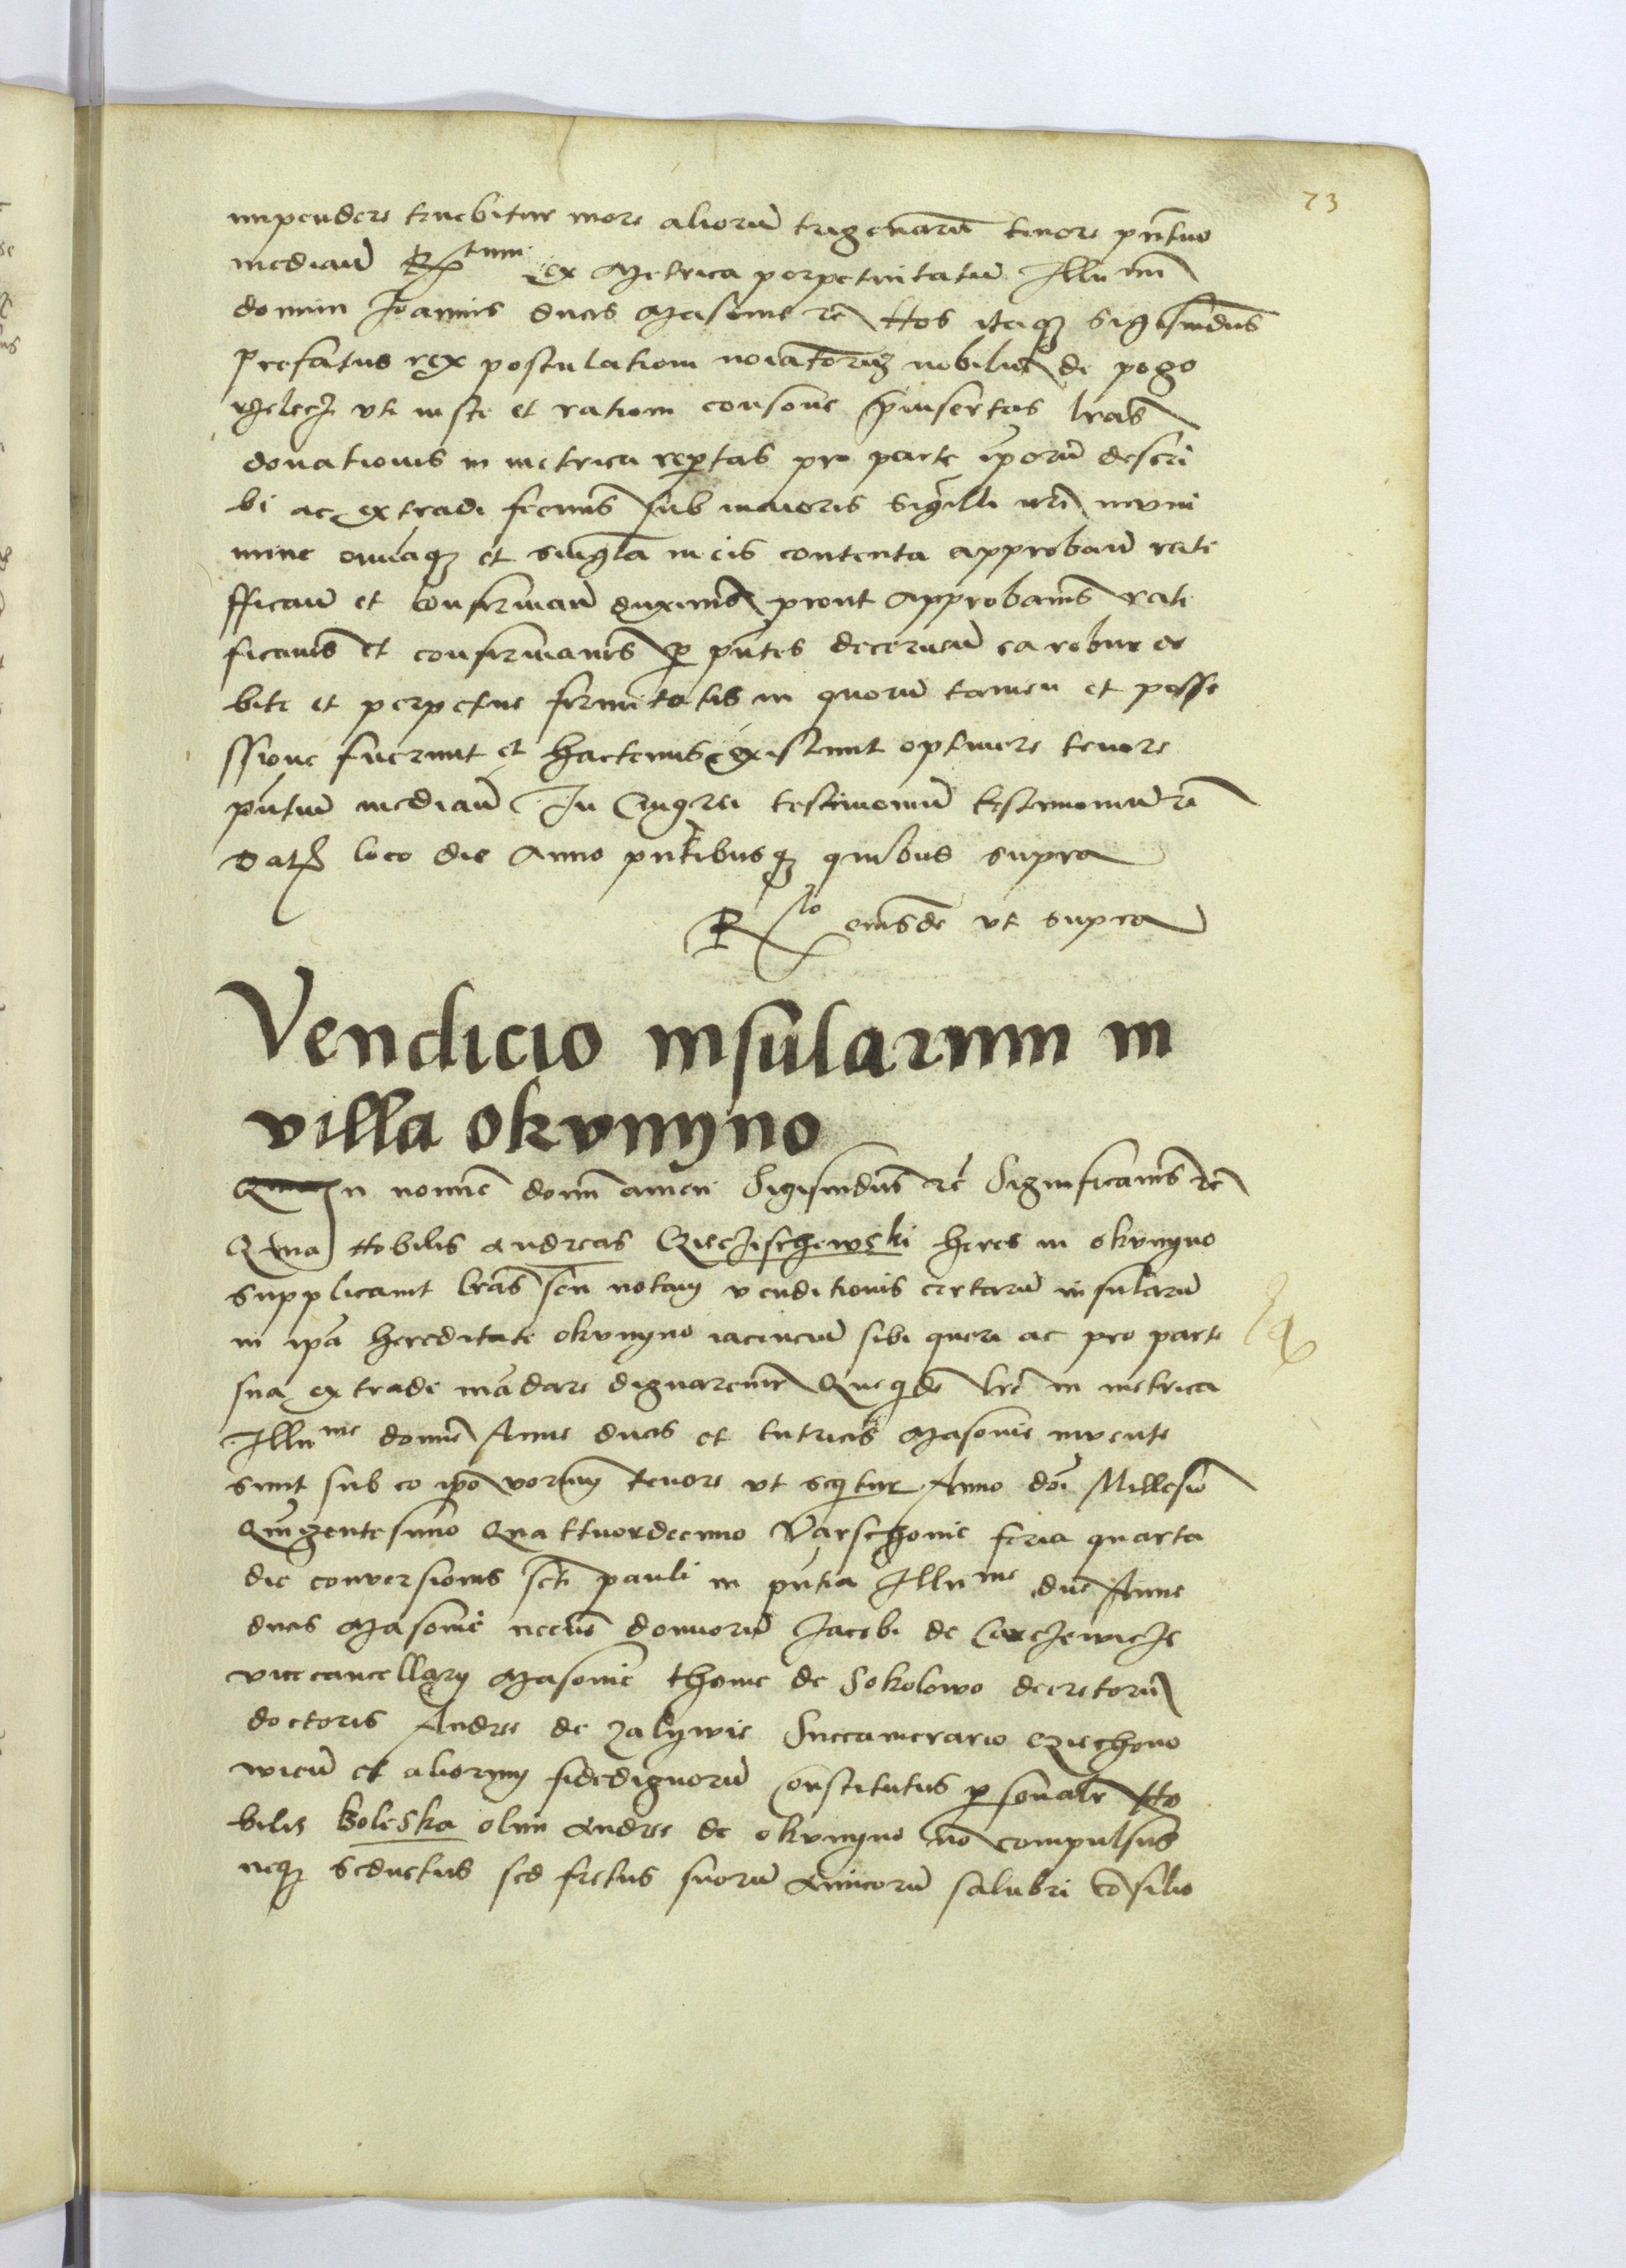 73
impendere tenebitur more aliorũ trigenarũ tenore pñtuo
mediañ Rtum ex Metrica perpetuitatum Illumi
domini Joannis ducis Masovie etc Nos itaq Sigismũdus
prefatus rex postulationi noiatorũ nobiliũ de pogo
rzelecz uti iuste et rationi consone p̃insertas lras
donationis in metrica rep̃tas pro parte ip̃orũ descri
bi ac extradi fecim̃s sub maioris sigilli nrĩ muni
mine omĩaq et singl̃a in eis contenta approbañ rati
fficañ et confirmañ duxim̃s prout approbam̃s rati
ficam̃s et confirmam̃s p pñtes decerneñ ea robur de
bite et perpetue firmitatis in quorũ tamen et posse
ssione fuerunt et hactenus existunt optinere tenore
pñtium mediañ In Cuius rei testimoniũ testimoniũ etc
Dat loco die Anno pñtibusq quibus supra
Rlo eiusdẽ ut supra
Vendicio insularum in
villa okvnyno
In nomine domĩ amen Sigismũdus etc Significam̃s etc
Quia Nobilis Andreas Cieczischewski heres in okvnyno
supplicavit lras seu notam venditionis certarũ insularũ
in ip̃a hereditate okvnyno iacenciũ sibi queri ac pro parte
sua extrade mãdare dignaremur Quequidẽ lrẽ in metrica
Illume domine Anne ducis et tutricis Masovie invente
sunt sub eo ip̃o verborum tenore ut sequitur Anno doĩ Millesiõ
Quingentesimo Quattuordecimo Varschovie feria quarta
die conversionis scti pauli in pñtia Illume dñe Anne
ducis Masovie necnõ dominorũ Jacobi de
vicecancellary Masovie thome de Sokolowo decretorũ
doctoris Andree de zalywie Succamerario Cziechono
wieñ et aliorum fidedignorũ Constitutus p sonalr No
bilis Boleska olim Andree de okvnyno nõ compulsus
neq seductus sed fretus suorũ Amicorũ salubri cõsilio